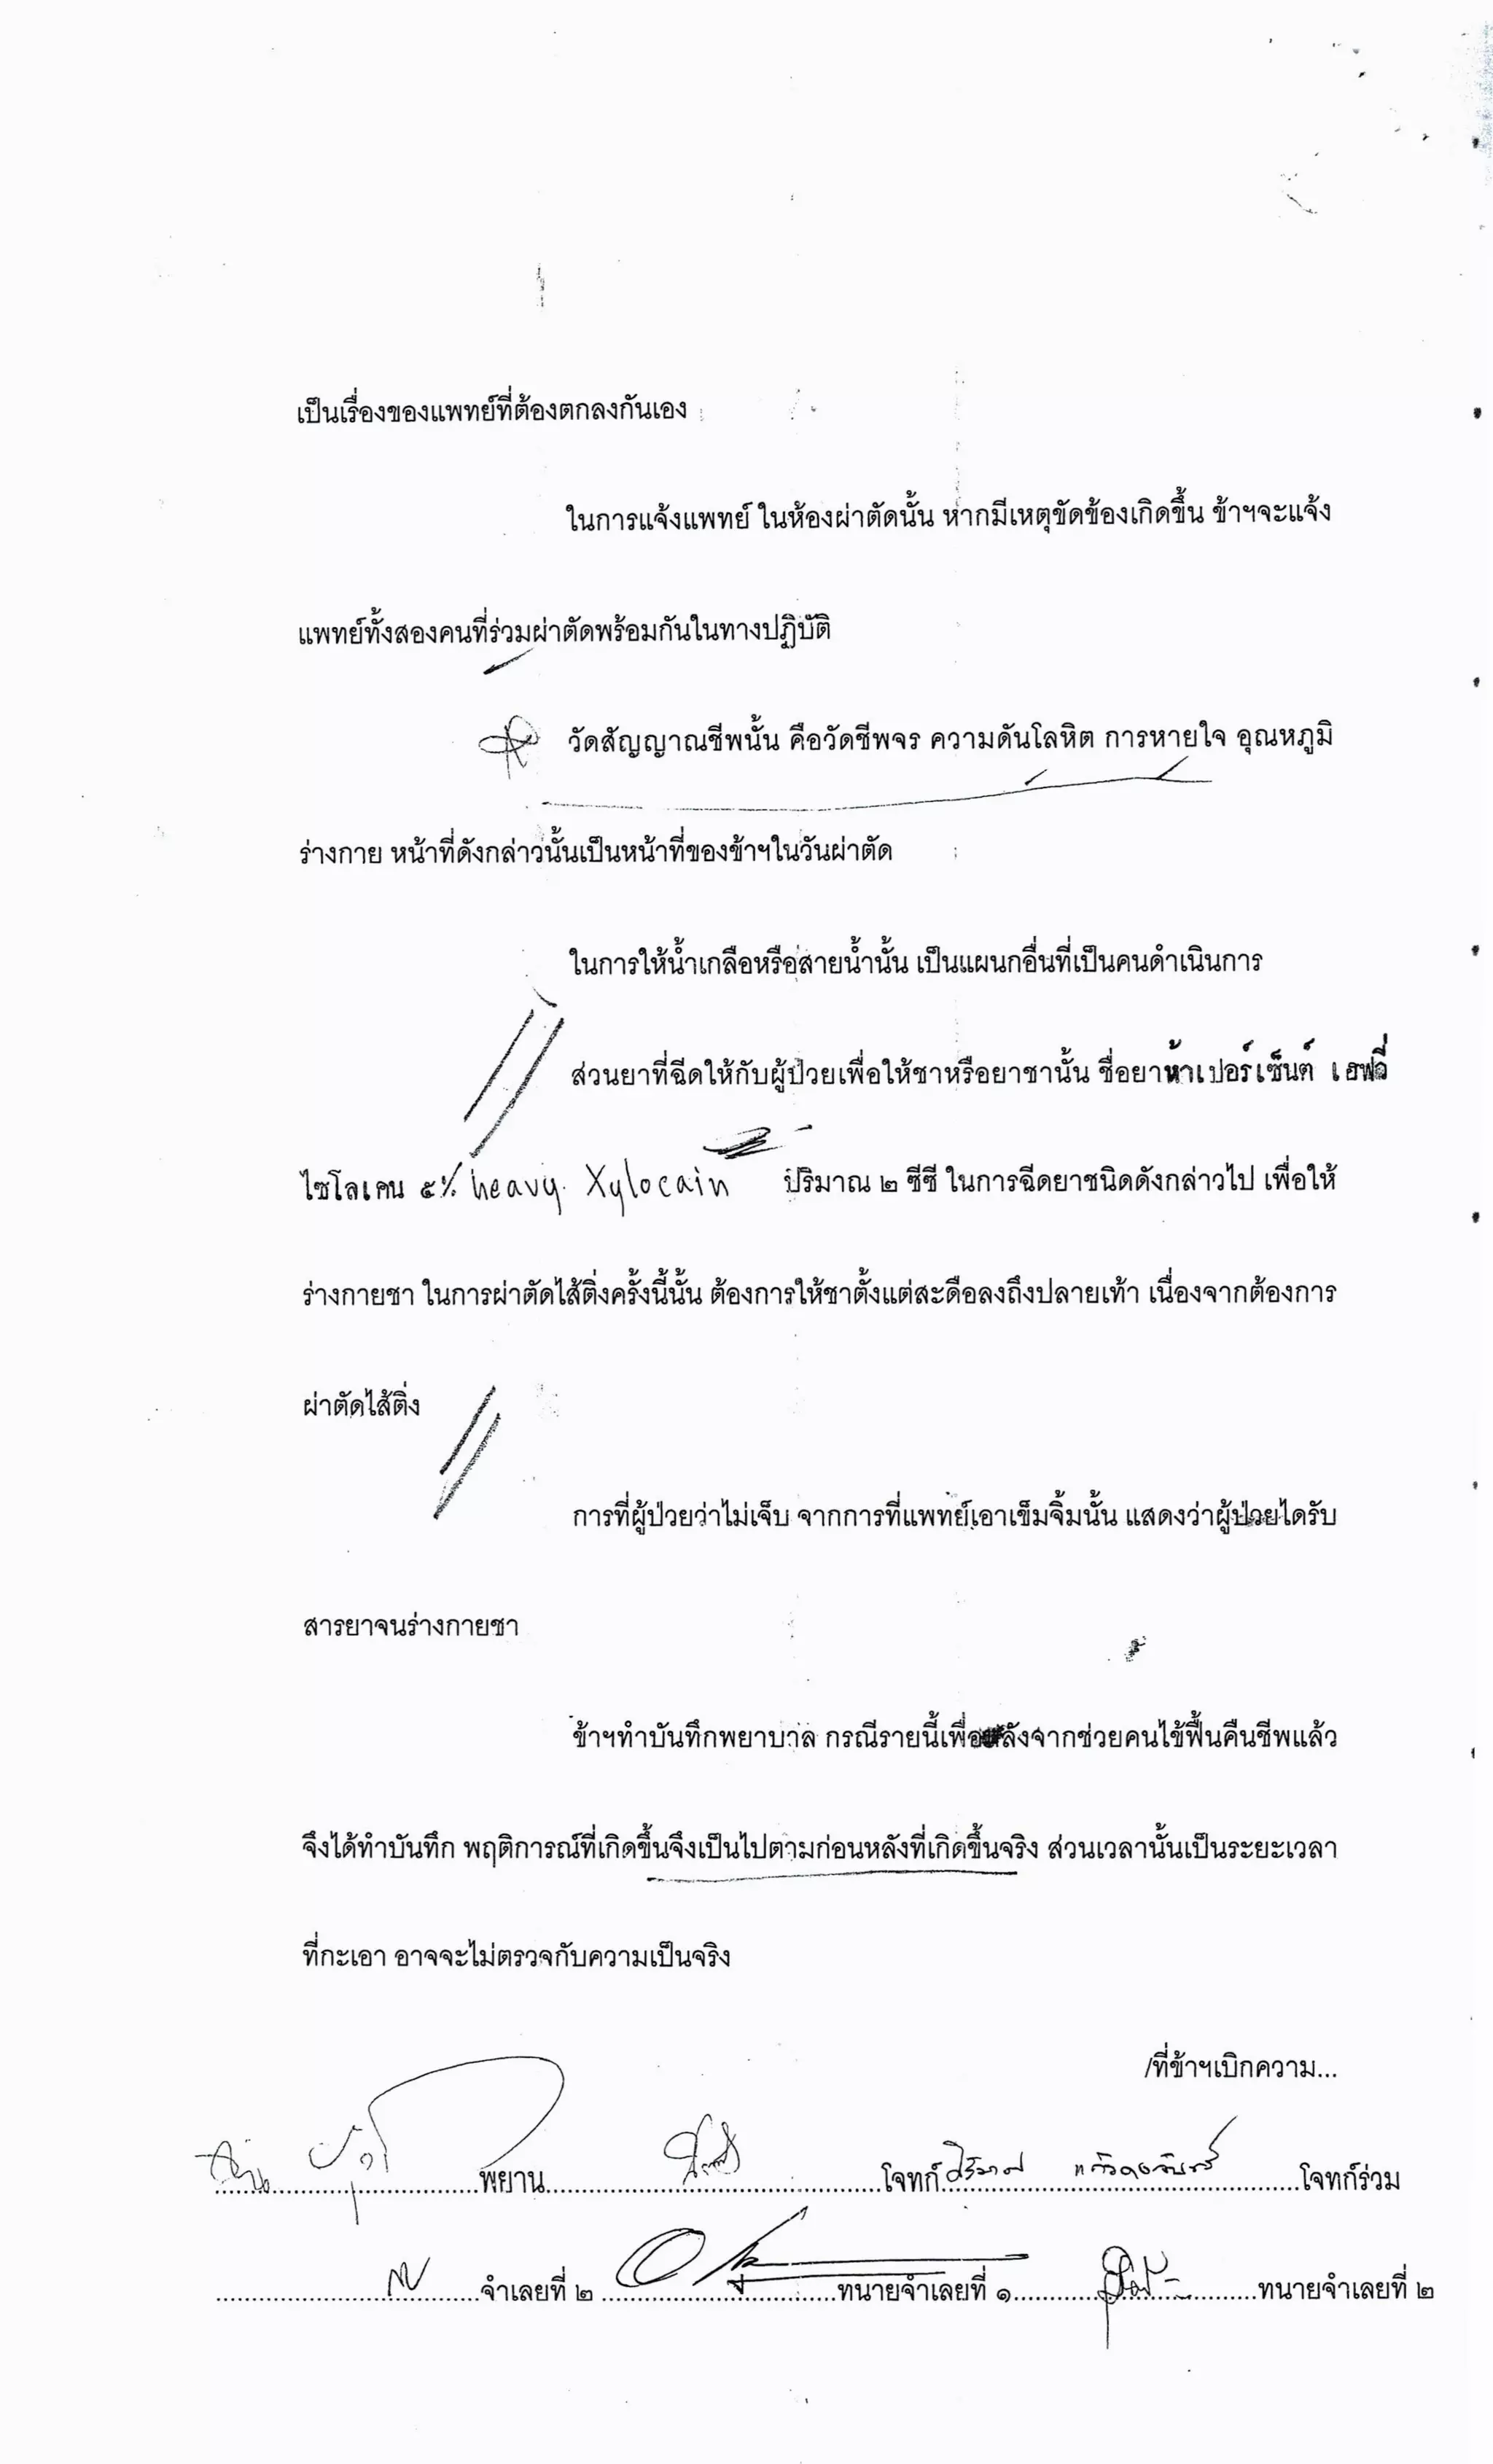 เป็นเรื่องของแพทย์ที่ต้องตกลงกันเอง
ในการแจ้งแพทย์ ในห้องผ่าตัดนั้น หากมีเหตุขัดข้องเกิดขึ้น ข้าฯจะแจ้ง
แพทย์ทั้งสองคนที่ร่วมผ่าตัดพร้อมกันในทางปฏิบัติ
วัดสัญญาณชีพนั้น คือวัดชีพจร ความดันโลหิต การหายใจ อุณหภูมิ
ร่างกาย หน้าที่ดังกล่าวนั้นเป็นหน้าที่ของข้าฯในวันผ่าตัด
ในการให้น้ำเกลือหรือสายน้ำนั้น เป็นแผนกอื่นที่เป็นคนดำเนินการ
ส่วนยาที่ฉีดให้กับผู้ป่วยเพื่อให้ชาหรือยาชานั้น ชื่อยาห้าเปอร์เซ็นต์ เฮฟวี่
ไซโลเคน ๕% heavy Xylocain ปริมาณ ๒ ซีซี ในการฉีดยาชนิดดังกล่าวไป เพื่อให้
ร่างกายชา ในการผ่าตัดไส้ติ่งครั้งนี้นั้น ต้องการให้ชาตั้งแต่สะดือลงถึงปลายเท้า เนื่องจากต้องการ
ผ่าตัดไส้ติ่ง
การที่ผู้ป่วยว่าไม่เจ็บ จากการที่แพทย์เอาเข็มจิ้มนั้น แสดงว่าผู้ป่วยได้รับ
สารยาจนร่างกายชา
ข้าฯทำบันทึกพยาบาล กรณีรายนี้เพื่อหลังจากช่วยคนไข้ฟื้นคืนชีพแล้ว
จึงได้ทำบันทึก พฤติการณ์ที่เกิดขึ้นจึงเป็นไปตามก่อนหลังที่เกิดขึ้นจริง ส่วนเวลานั้นเป็นระยะเวลา
ที่กะเอา อาจจะไม่ตรวจกับความเป็นจริง
/ที่ข้าฯเบิกความ...
พยาน โจทก์ โจทก์ร่วม
จำเลยที่ ๒ ทนายจำเลยที่ ๑ ทนายจำเลยที่ ๒